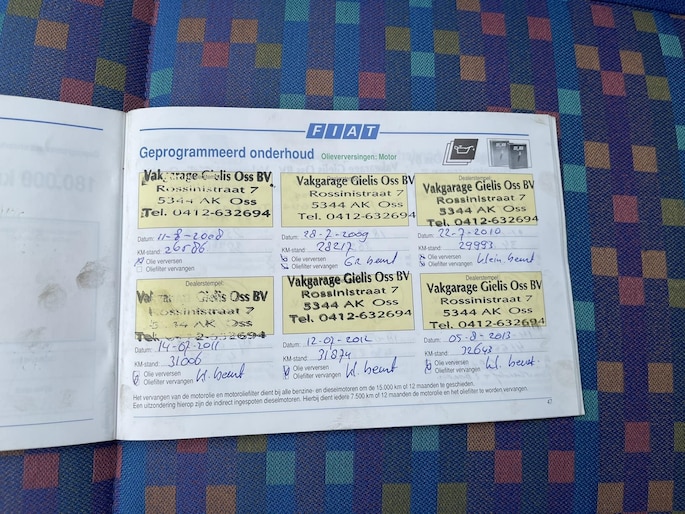 180.000 k
FIAT
Geprogrammeerd onderhoud Olieverversingen: Motor
Vakgarage Gielis Oss BV
Rossinistraat 7
5344 AK Oss
Tel. 0412-632694
Datum: 11-8-2008
KM-stand: 26586
Olie verversen
Oliefilter vervangen
Vakgarage Gielis Oss BV
Rossinistraat 7
5344 AK Oss
Tel. 0412-632694
Datum: 28-7-2009
KM-stand: 28217
Olie verversen
Oliefilter vervangen Gr beurt
Dealerstempel:
Vakgarage Gielis Oss BV
Rossinistraat 7
5344 AK Oss
Tel. 0412-632694
Datum: 22-7-2010
KM-stand: 29993
Olie verversen
Oliefilter vervangen klein beurt
Dealerstempel:
Gielis Oss BV
Rossinistraat 7
AK Oss
0412-632694
Datum: 14-07-2011
KM-stand: 31006
Olie verversen
Oliefilter vervangen kl. beurt
Vakgarage Gielis Oss BV
Rossinistraat 7
5344 AK Oss
Tel. 0412-632694
Datum: 12-07-2012
KM-stand: 31874
Olie verversen
Oliefilter vervangen kl. beurt
Dealerstempel:
Vakgarage Gielis Oss BV
Rossinistraat 7
5344 AK Oss
Tel. 0412-632694
Datum: 05-8-2013
KM-stand: 32643
Olie verversen
Oliefilter vervangen kl. beurt
Het vervangen van de motorolie en motoroliefilter dient bij alle benzine- en dieselmotoren om de 15.000 km of 12 maanden te geschieden.
Een uitzondering hierop zijn de indirect ingespoten dieselmotoren. Hierbij dient iedere 7.500 km of 12 maanden de motorolie en het oliefilter te worden vervangen.
47